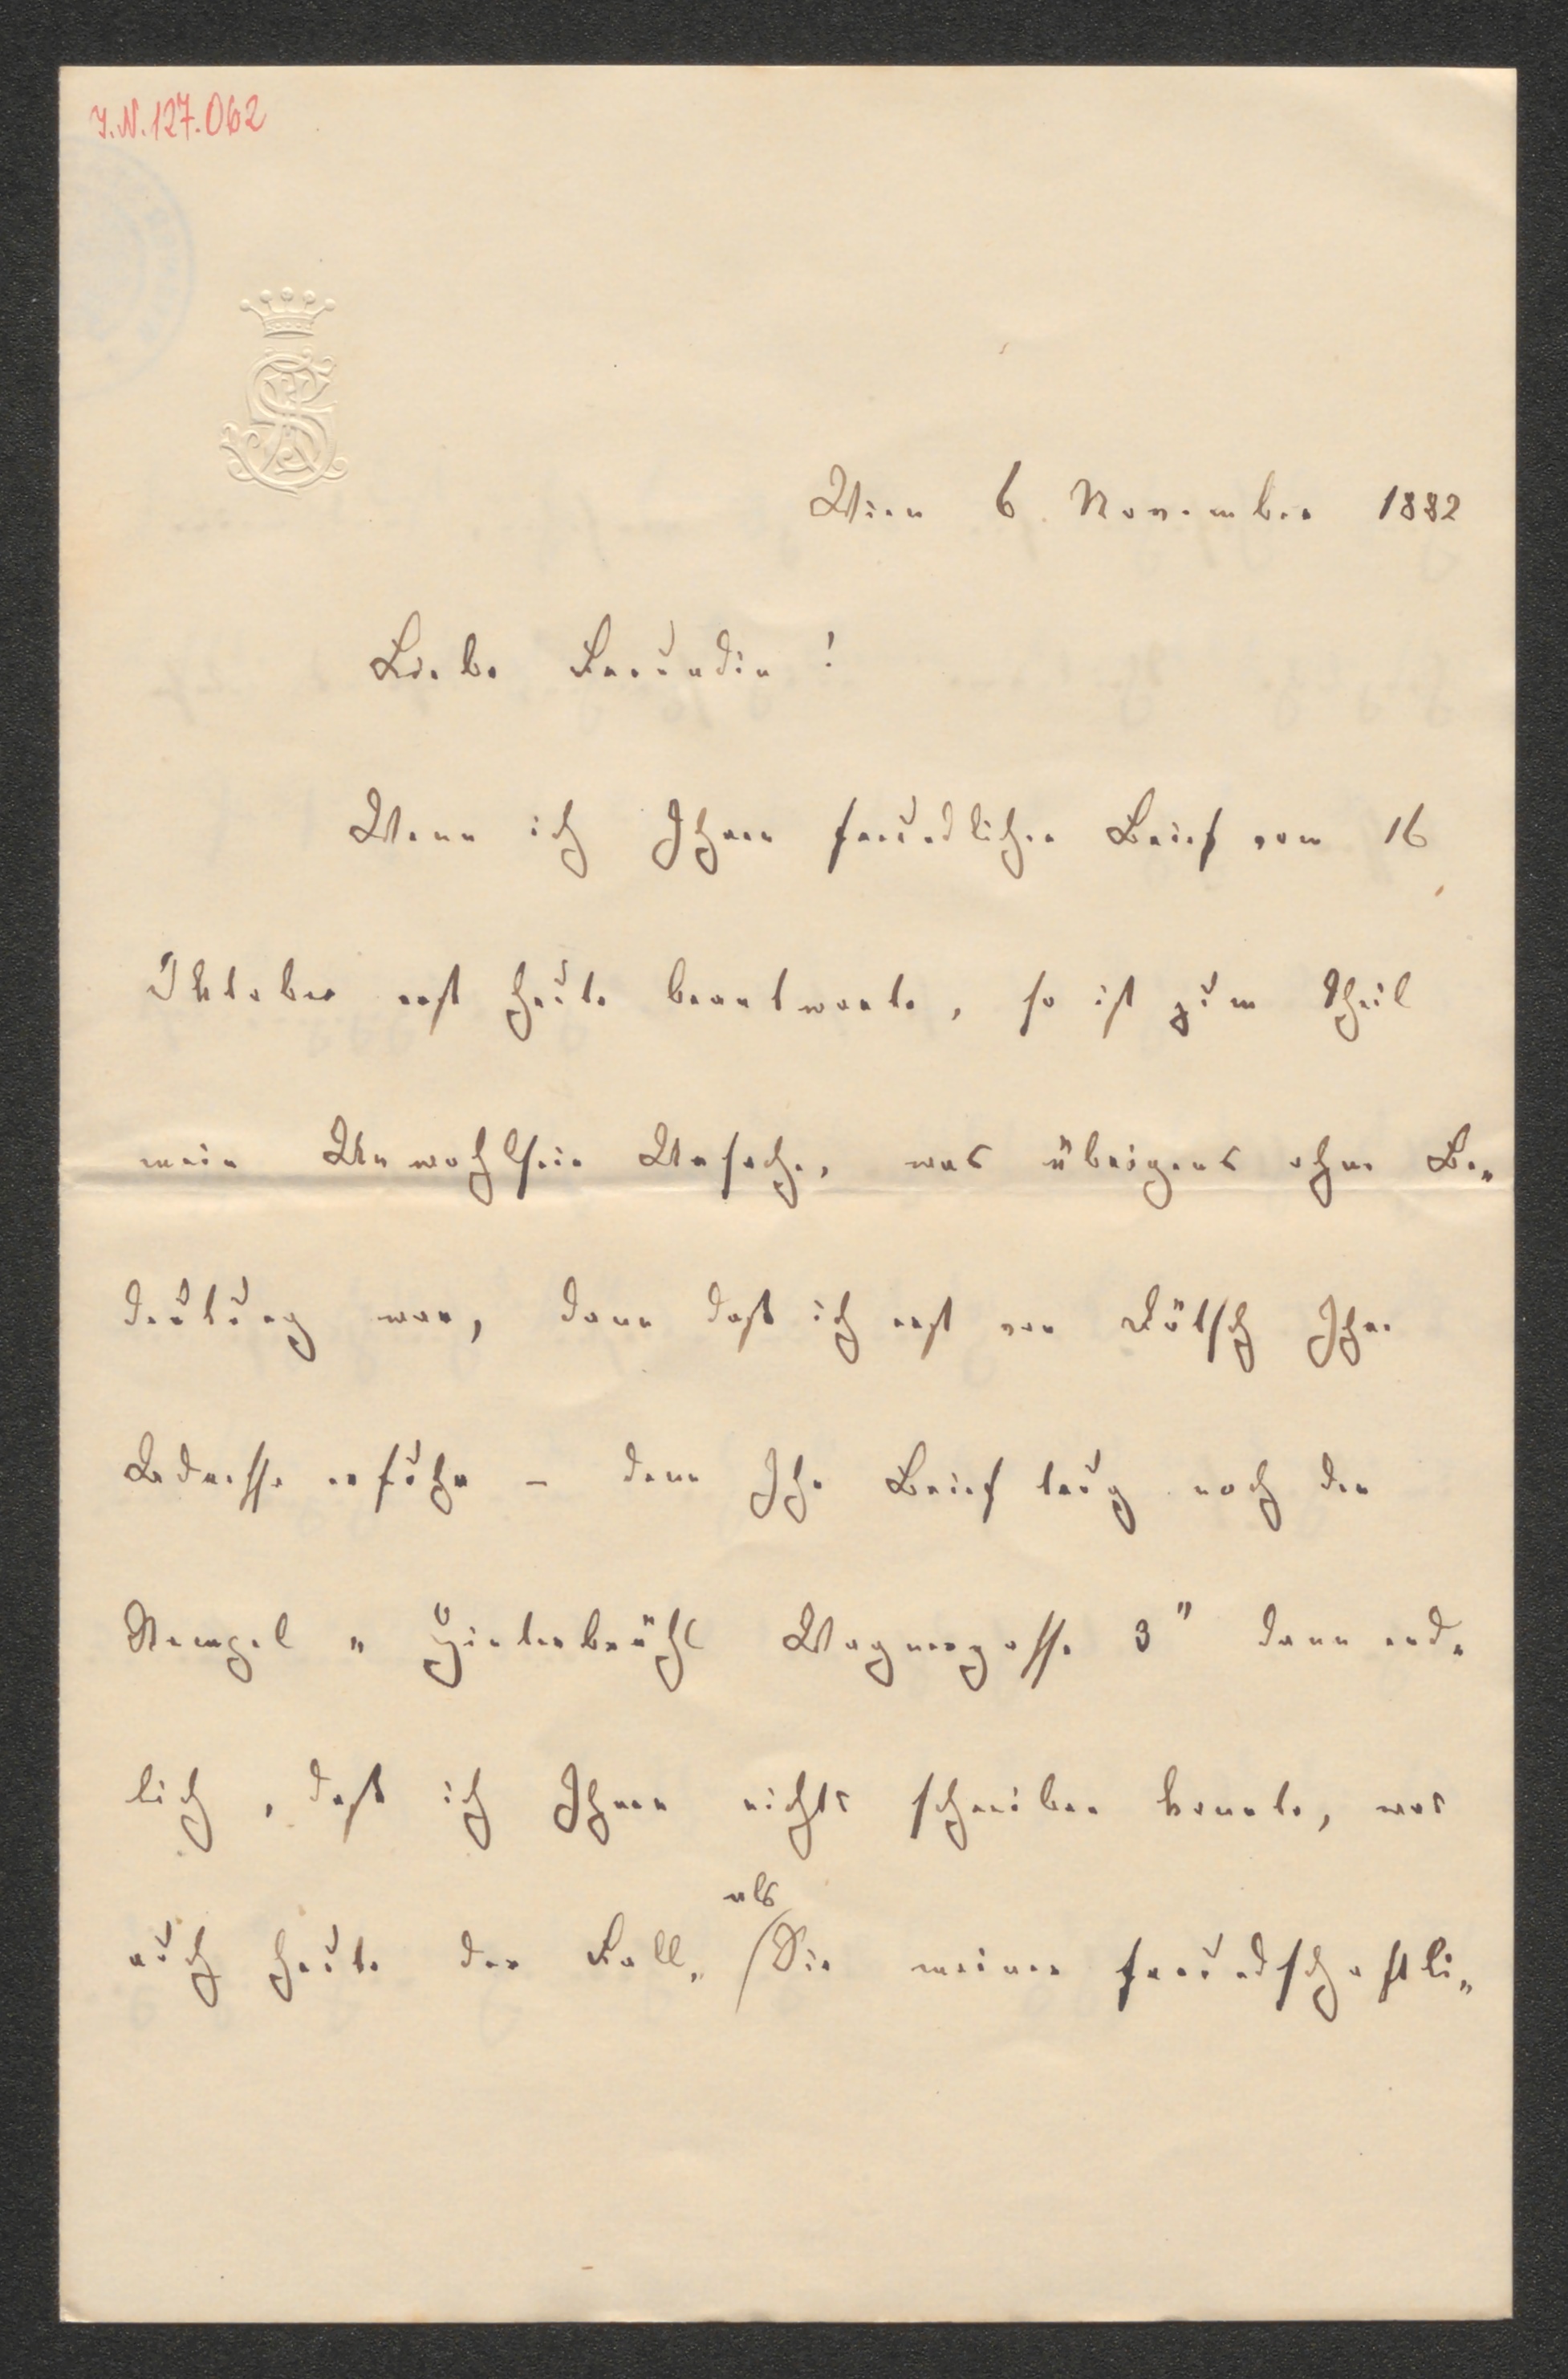 J.N. 127.062
Wien 6 November 1882
Liebe Freundin!
Wenn ich Ihren freundlichen Brief vom 16
Oktober erst heute beantworte, so ist zum Theil
mein Unwohlsein Ursache, was übrigens ohne Be„
deutung war, dann daß ich erst von Dutsch Ihre
Adresse erfuhr – denn Ihr Brief trug noch den
Stempel „Hinterbrühl Wagnergasse 3" dann end„
lich, daß ich Ihnen nichts schreiben konnte, was
als
auch heute der Fall, Sie meiner freundschaftli„